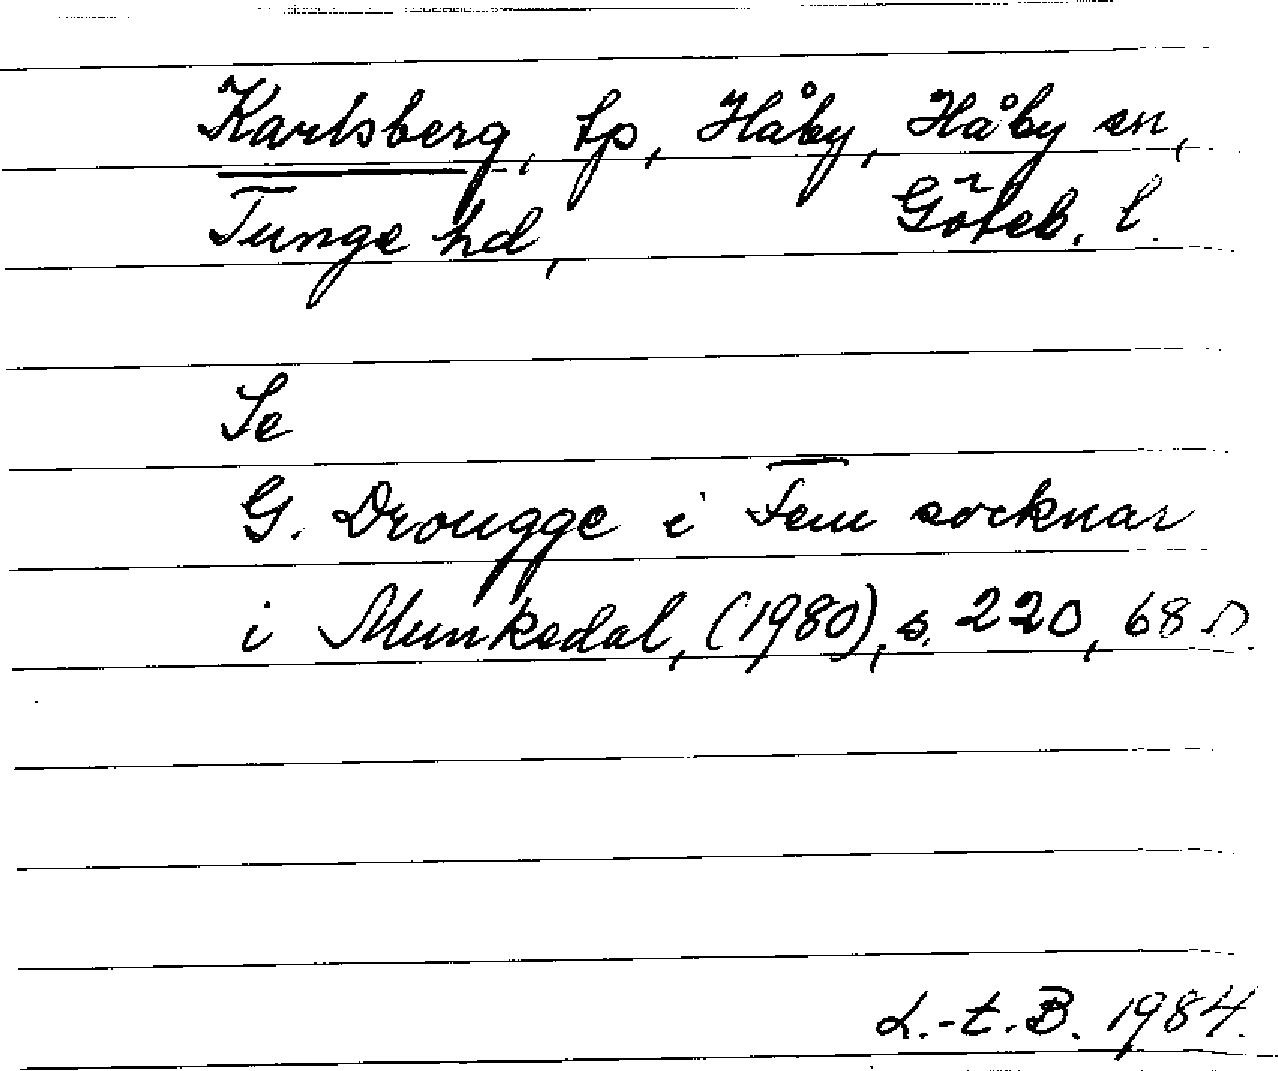 Karlsberg, tp, Håby, Håby sn,
Tunge hd, Göteb. l.
Se
G. Drougge i Fem socknar
i Munkedal, (1980), s. 220, 68
L.-t.B. 1984.